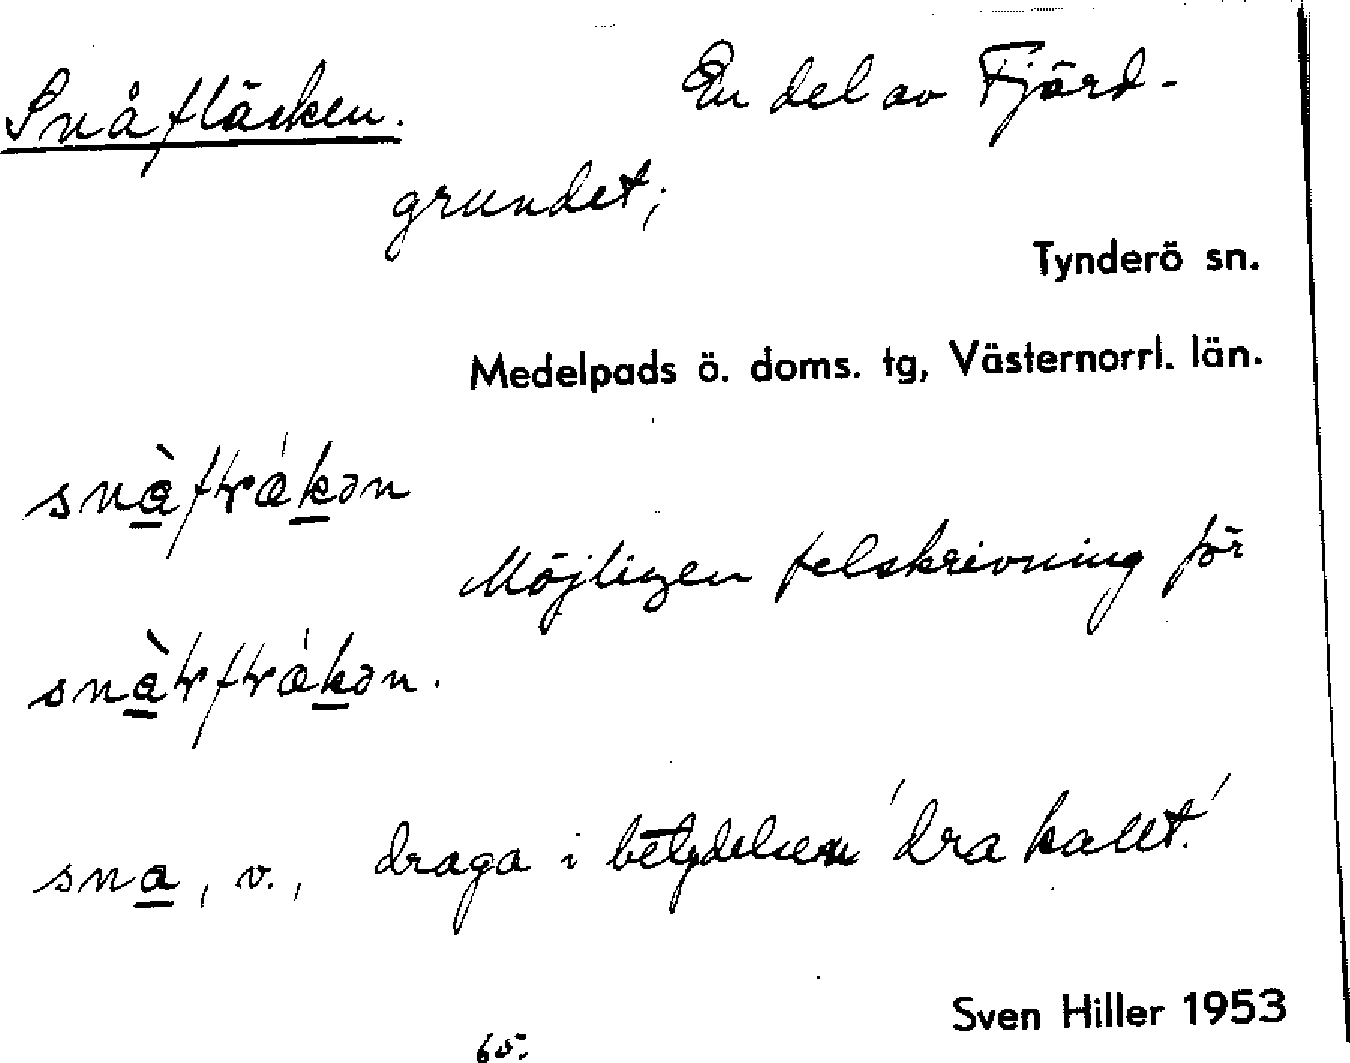 Snåfläcken. En del av Fjärd-
grundet;
Tynderö sn.
Medelpads ö. doms. tg, Västernorrl. län.
Möjligen felskrivning för
sna, v., draga i betydelsen 'dra kallt.'
Sven Hiller 1953